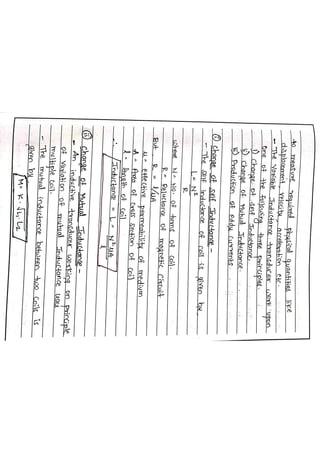 to measure required physical quantities like
displacement, velocity, acceleration etc.
- The Variable Inductance transducer work upon
one of the following three principles.
i) Change of self Inductance.
ii) Change of Mutual Inductance.
iii) Production of eddy currents.
(i) Change of self Inductance -
- The self Inductance of coil is given by
L = N²
R
Where N = No. of turns of coil.
R = Reluctance of magnetic circuit
But R = l/μA
μ = effective permeability of medium
A = Area of cross section of coil
l = length of coil
∴ Inductance = L = N²μA
l
(ii) Change of Mutual Inductance -
- An inductive transducer working on principle
of variation of mutual Inductance uses
multiple coil.
- The mutual inductance between two coils is
given by M = K √L₁L₂